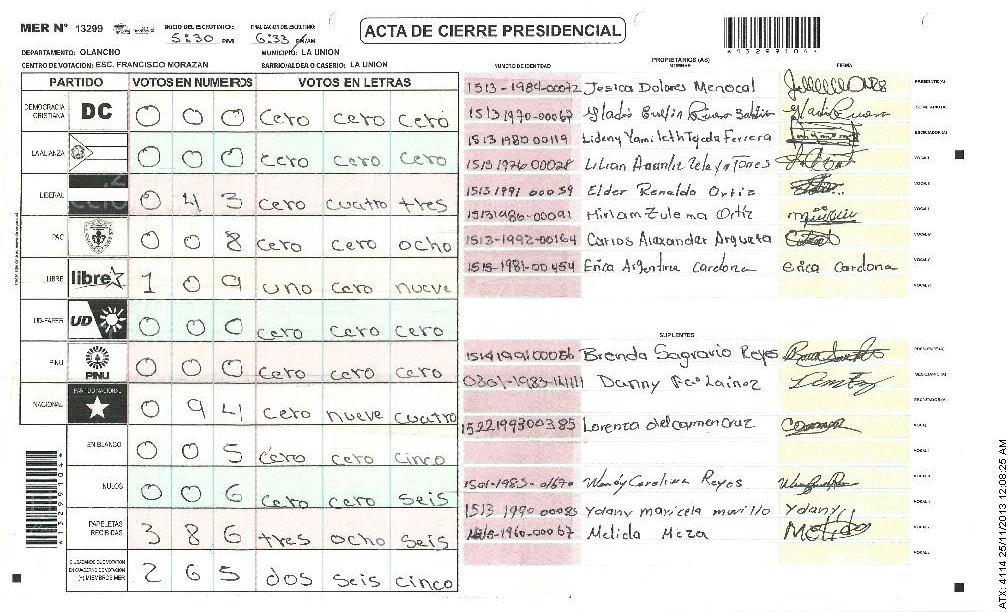 MER Nº 13299 INICIO DEL ESCRUTINIO: 5:30 PM FINALIZACION DEL ESCRUTINIO: 6:33 PM/AM
ACTA DE CIERRE PRESIDENCIAL
13299104
DEPARTAMENTO: OLANCHO MUNICIPIO: LA UNION
CENTRO DE VOTACION: ESC. FRANCISCO MORAZAN BARRIO/ALDEA O CASERIO: LA UNION
PARTIDO VOTOS EN NUMEROS VOTOS EN LETRAS
DEMOCRACIA CRISTIANA DC 0 0 0 cero cero cero
LA ALIANZA 0 0 0 cero cero cero
LIBERAL 0 4 3 cero cuatro tres
PAC 0 0 8 cero cero ocho
LIBRE libre 1 0 9 uno cero nueve
UD-FAPER UD 0 0 0 cero cero cero
PINU PINU 0 0 0 cero cero cero
NACIONAL PARTIDO NACIONAL 0 9 4 cero nueve cuatro
EN BLANCO 0 0 5 cero cero cinco
NULOS 0 0 6 cero cero seis
PAPELETAS RECIBIDAS 3 8 6 tres ocho seis
CIUDADANOS QUE VOTARON EN CUADERNO DE VOTACION (+) MIEMBROS MER 2 6 5 dos seis cinco
PROPIETARIOS (AS)
NUMERO DE IDENTIDAD NOMBRE FIRMA
1513-1984-00072 Jesica Dolores Menocal PRESIDENTE(A)
1513 1970-00067 Gladis Evelin Rivera SECRETARIO(A)
1513 1980 00119 Lideny Yamileth Tejeda Ferrera ESCRUTADOR(A)
1515 1976 00028 Lilian Zelaya Torres VOCAL I
1513 1991 00039 Elder Renaldo Ortiz
15131986-00091 Miriam Zulema Ortiz
1513-1992-00164 Carlos Alexander Argueta
1515-1981-00454 Erica Argentina Cardona Erica Cardona
SUPLENTES
1514199100086 Brenda Sagrario Reyes PRESIDENTE(A)
Danny Lainez SECRETARIO(A)
ESCRUTADOR(A)
1522199300385 Lorenza del carmen Cruz VOCAL
1501-1983-01670 Wendy Carolina Reyes
1513 1990 00085 Ydany maricela murillo Ydany
1960-00067 Melida Meza Melida
ATX: 4114 25/11/2013 12:08:25 AM